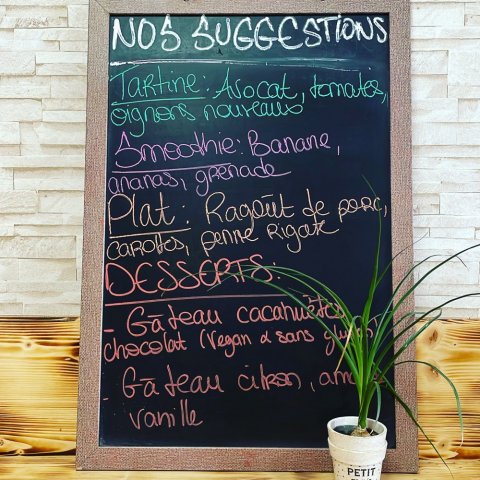 NOS SUGGESTIONS
Tartine: Avocat, tomates,
oignons nouveaux
Smoothie: Banane,
ananas, grenade
Plat: Ragoût de porc,
carottes, penne Rigate
DESSERTS:
- Gâteau cacahuètes
chocolat (Vegan & sans
- Gâteau citron,
vanille
PETIT